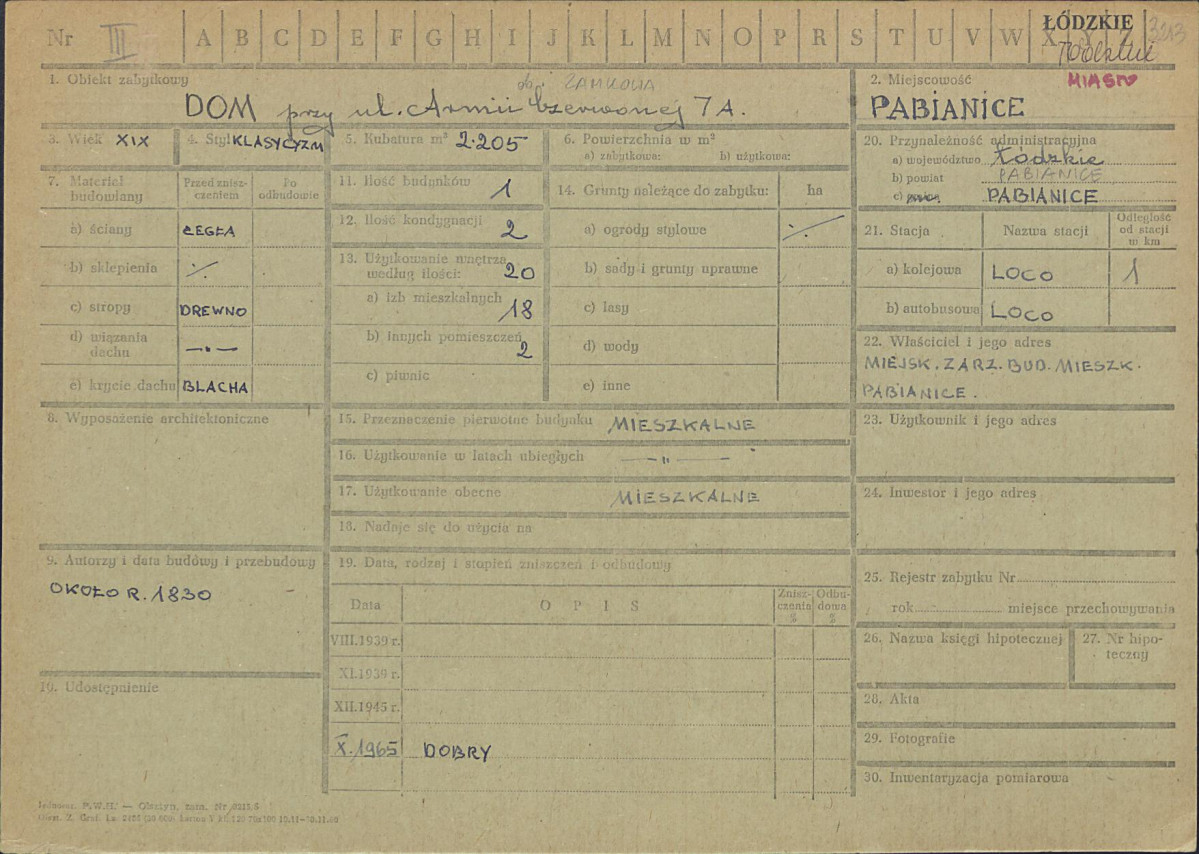 Nr III A B C D E F G H I J K L M N O P R S T U V W X Y Z
ŁÓDZKIE
3213
MIASTO
1. Obiekt zabytkowy
ob. ZAMKOWA
DOM przy ul. Armii Czerwonej 7A.
2. Miejscowość
PABIANICE
3. Wiek XIX
4. Styl KLASYCYZM
5. Kubatura m³ 2.205
6. Powierzchnia w m²
a) zabytkowa: b) użytkowa:
7. Materiał budowlany
Przed znisz-
czeniem
Po
odbudowie
a) ściany CEGŁA
b) sklepienia ./.
c) stropy DREWNO
d) wiązania
dachu —"—
e) krycie dachu BLACHA
11. Ilość budynków 1
12. Ilość kondygnacji 2
13. Użytkowanie wnętrza
według ilości: 20
a) izb mieszkalnych 18
b) innych pomieszczeń 2
c) piwnic
14. Grunty należące do zabytku: ha
a) ogrody stylowe ./.
b) sady i grunty uprawne
c) lasy
d) wody
e) inne
20. Przynależność administracyjna
a) województwo Łódzkie
b) powiat PABIANICE
c) PABIANICE
21. Stacja
Nazwa stacji
Odległość
od stacji
w km
a) kolejowa LOCO 1
b) autobusowa LOCO
22. Właściciel i jego adres
MIEJSK. ZARZ. BUD. MIESZK.
PABIANICE.
8. Wyposażenie architektoniczne
15. Przeznaczenie pierwotne budynku MIESZKALNE
16. Użytkowanie w latach ubiegłych —"—
17. Użytkowanie obecne MIESZKALNE
18. Nadaje się do użycia na
23. Użytkownik i jego adres
24. Inwestor i jego adres
9. Autorzy i data budowy i przebudowy
OKOŁO R. 1830
10. Udostępnienie
19. Data, rodzaj i stopień zniszczeń i odbudowy
Data
OPIS
Znisz-
czenia
%
Odbu-
dowa
%
VIII.1939 r.
XI.1939 r.
XII.1945 r.
X.1965 DOBRY
25. Rejestr zabytku Nr
rok miejsce przechowywania
26. Nazwa księgi hipotecznej
27. Nr hipo-
teczny
28. Akta
29. Fotografie
30. Inwentaryzacja pomiarowa
P.W.H. — Olsztyn, zam. Nr